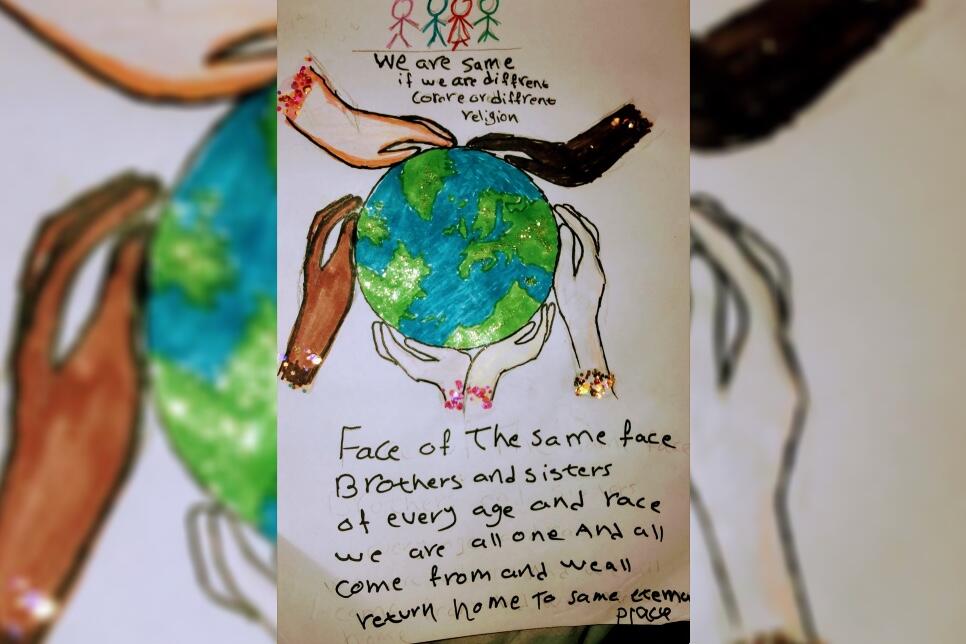 We are same
if we are diffrent
colore or diffrent
religion
Face of The same face
Brothers and sisters
of every age and race
we are all one And all
come from and we all
return home To same eterna
place